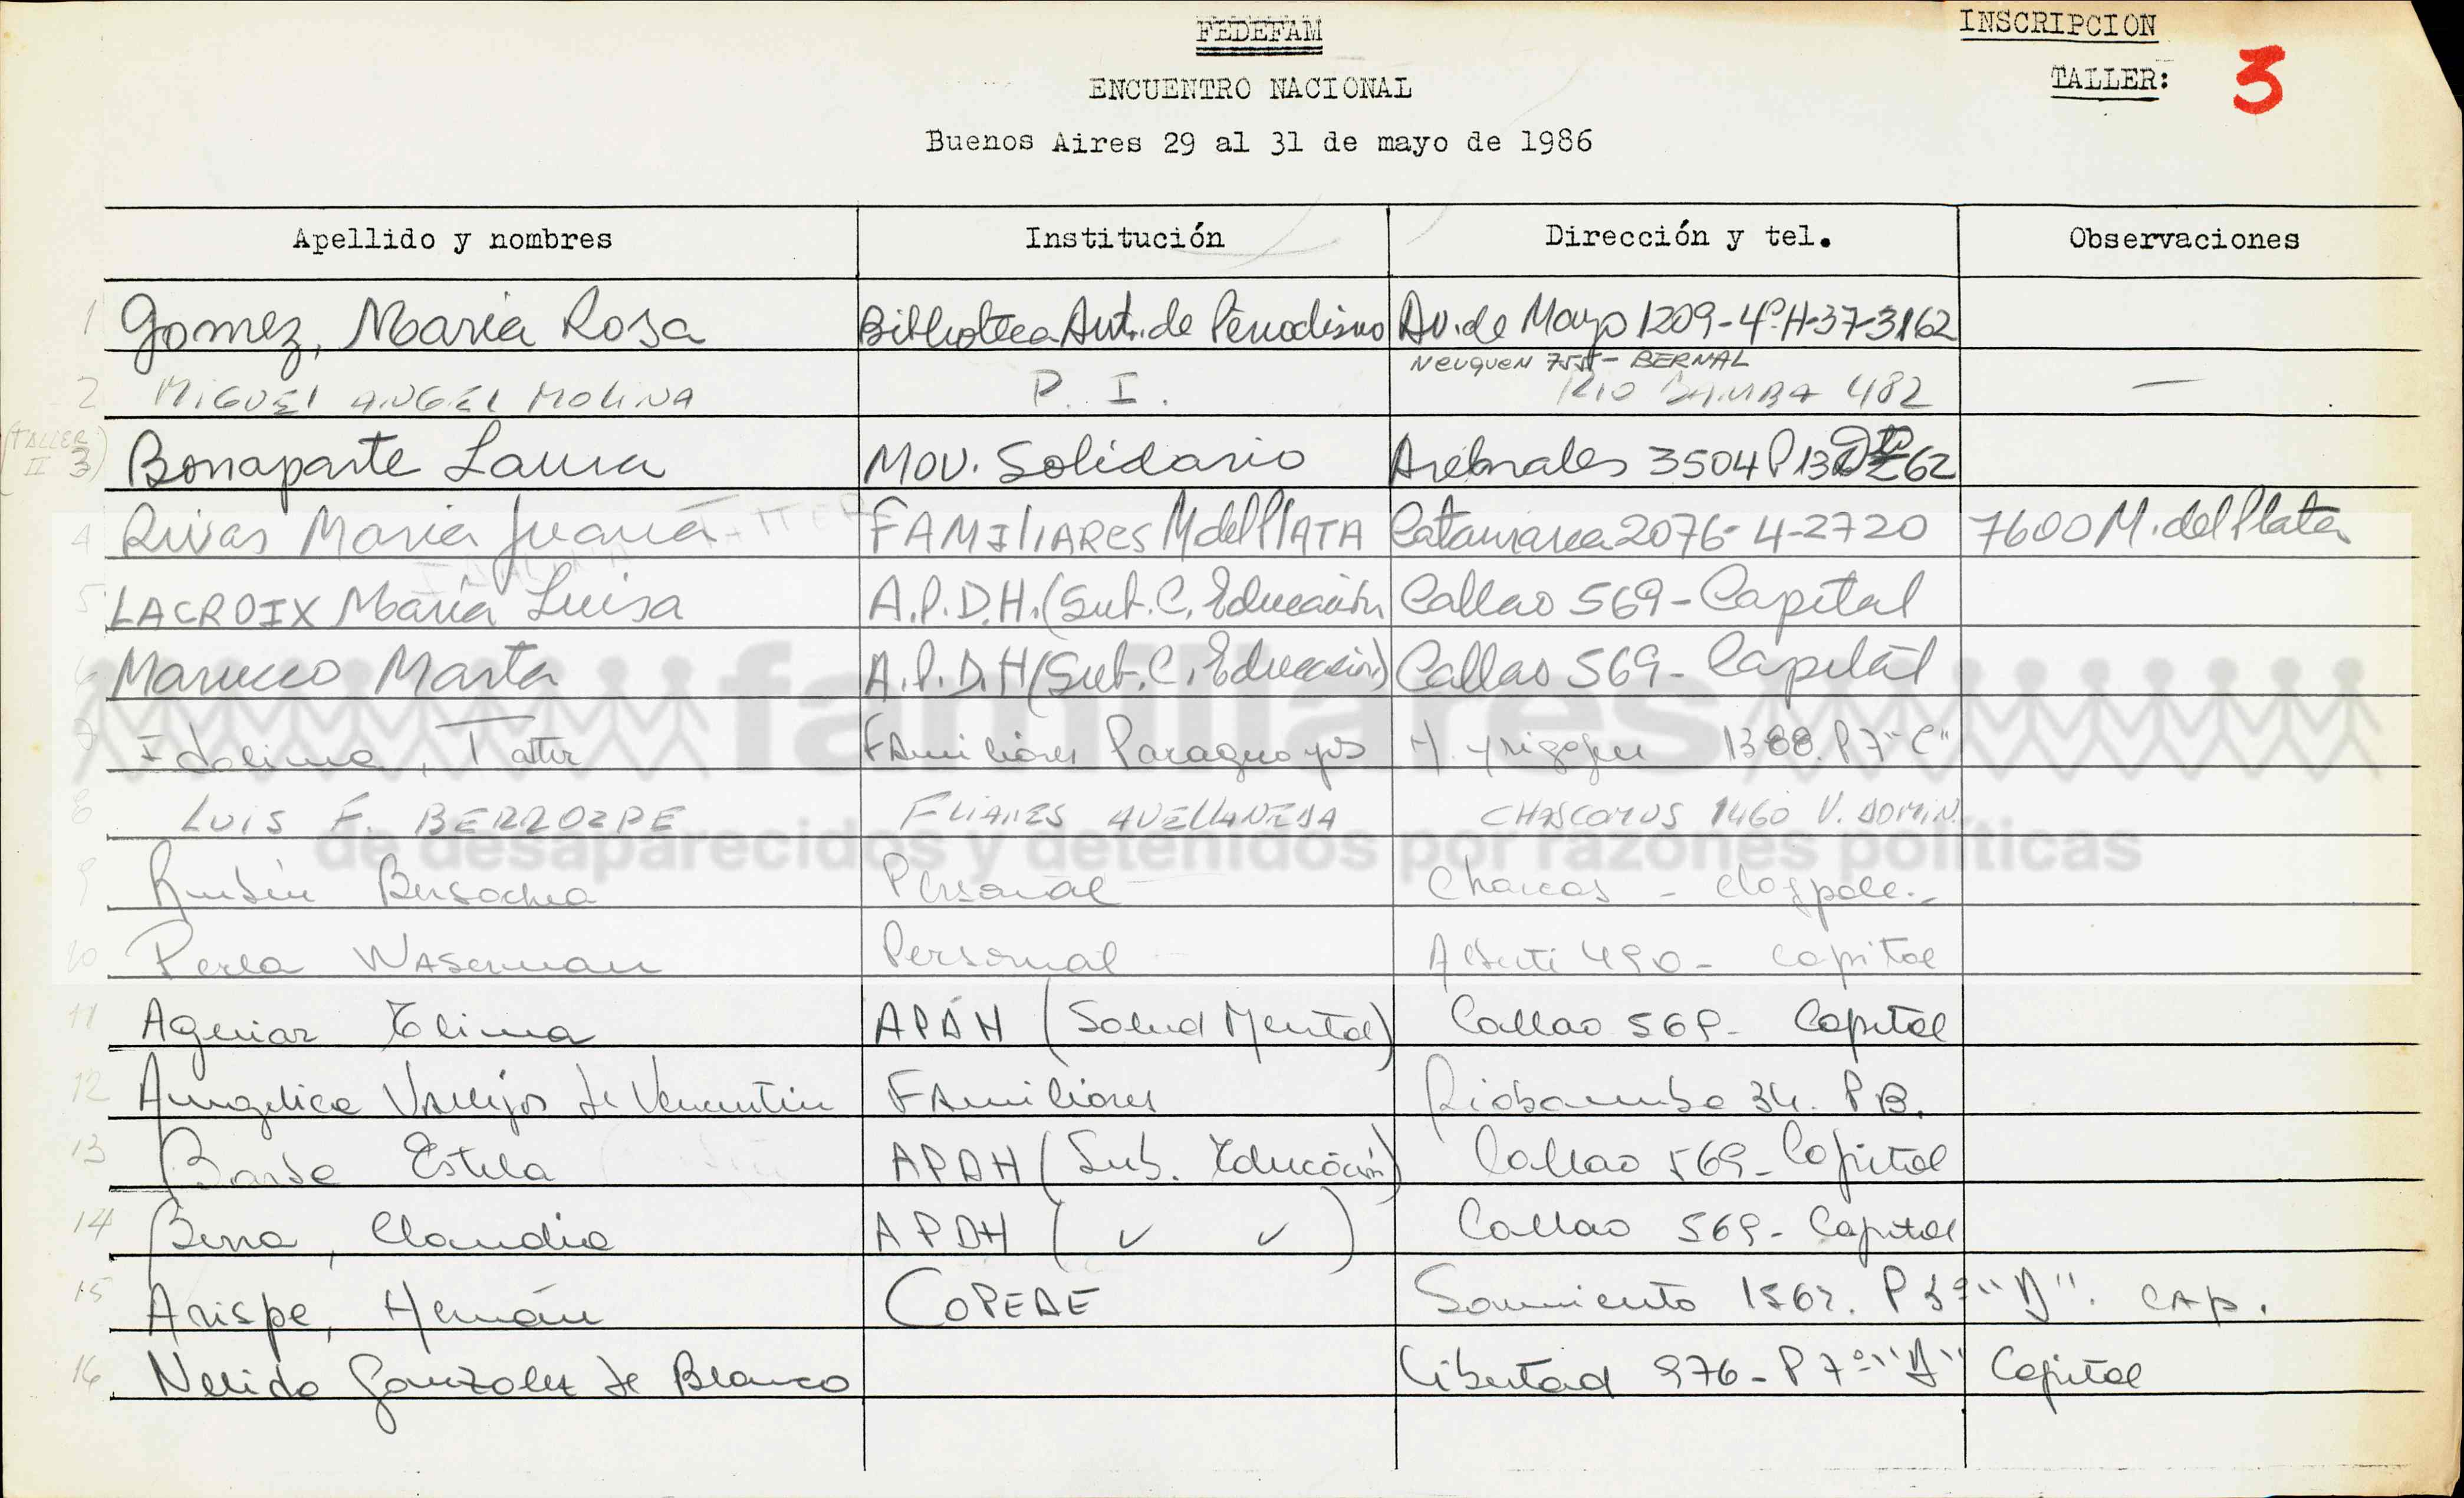 FEDEFAM
INSCRIPCION
TALLER: 3
ENCUENTRO NACIONAL
Buenos Aires 29 al 31 de mayo de 1986
Apellido y nombres Institución Dirección y tel. Observaciones
1 Gomez, Maria Rosa Biblioteca Aut. de Periodismo Av. de Mayo 1209-4º H-37-3162
Neuquen 755 - BERNAL
2 MIGUEL ANGEL MOLINA P. I. RIO BAMBA 482 —
(TALLER II 3) Bonaparte Laura Mov. Solidario Arenales 3504 P 13 62
4 Rivas Maria Juana FAMILIARES M del PLATA Catamarca 2076- 4-2720 7600 M. del Plata
5 LACROIX María Luisa A.P.D.H. (Sub. C. Educación Callao 569 - Capital
6 Marucco Marta A.P.D.H (Sub. C. Educación) Callao 569 - Capital
7 Idalina, Tatter Familiares Paraguayos H. Yrigoyen 1388. P 7 "C"
8 LUIS F. BERROZPE FLIARES AVELLANEDA CHASCOMUS 1460 V. DOMIN.
familiares
de desaparecidos y detenidos por razones políticas
9 Rubén Personal Charcas -
10 Perla Waserman Personal Alberti 490 - Capital
11 Aguiar Elina APDH (Salud Mental) Callao 569 - Capital
12 Angelica Vallejos de Familiares Riobamba 34. PB.
13 Estela APDH (Sub. Educación) Callao 569 - Capital
14 Claudia APDH ( ✓ ✓ ) Callao 569 - Capital
15 Arispe, Hernán COPEDE Sarmiento P 3º "D". CAP.
16 Nelida Gonzalez de Blanco Libertad 976 - P 7º "A" Capital